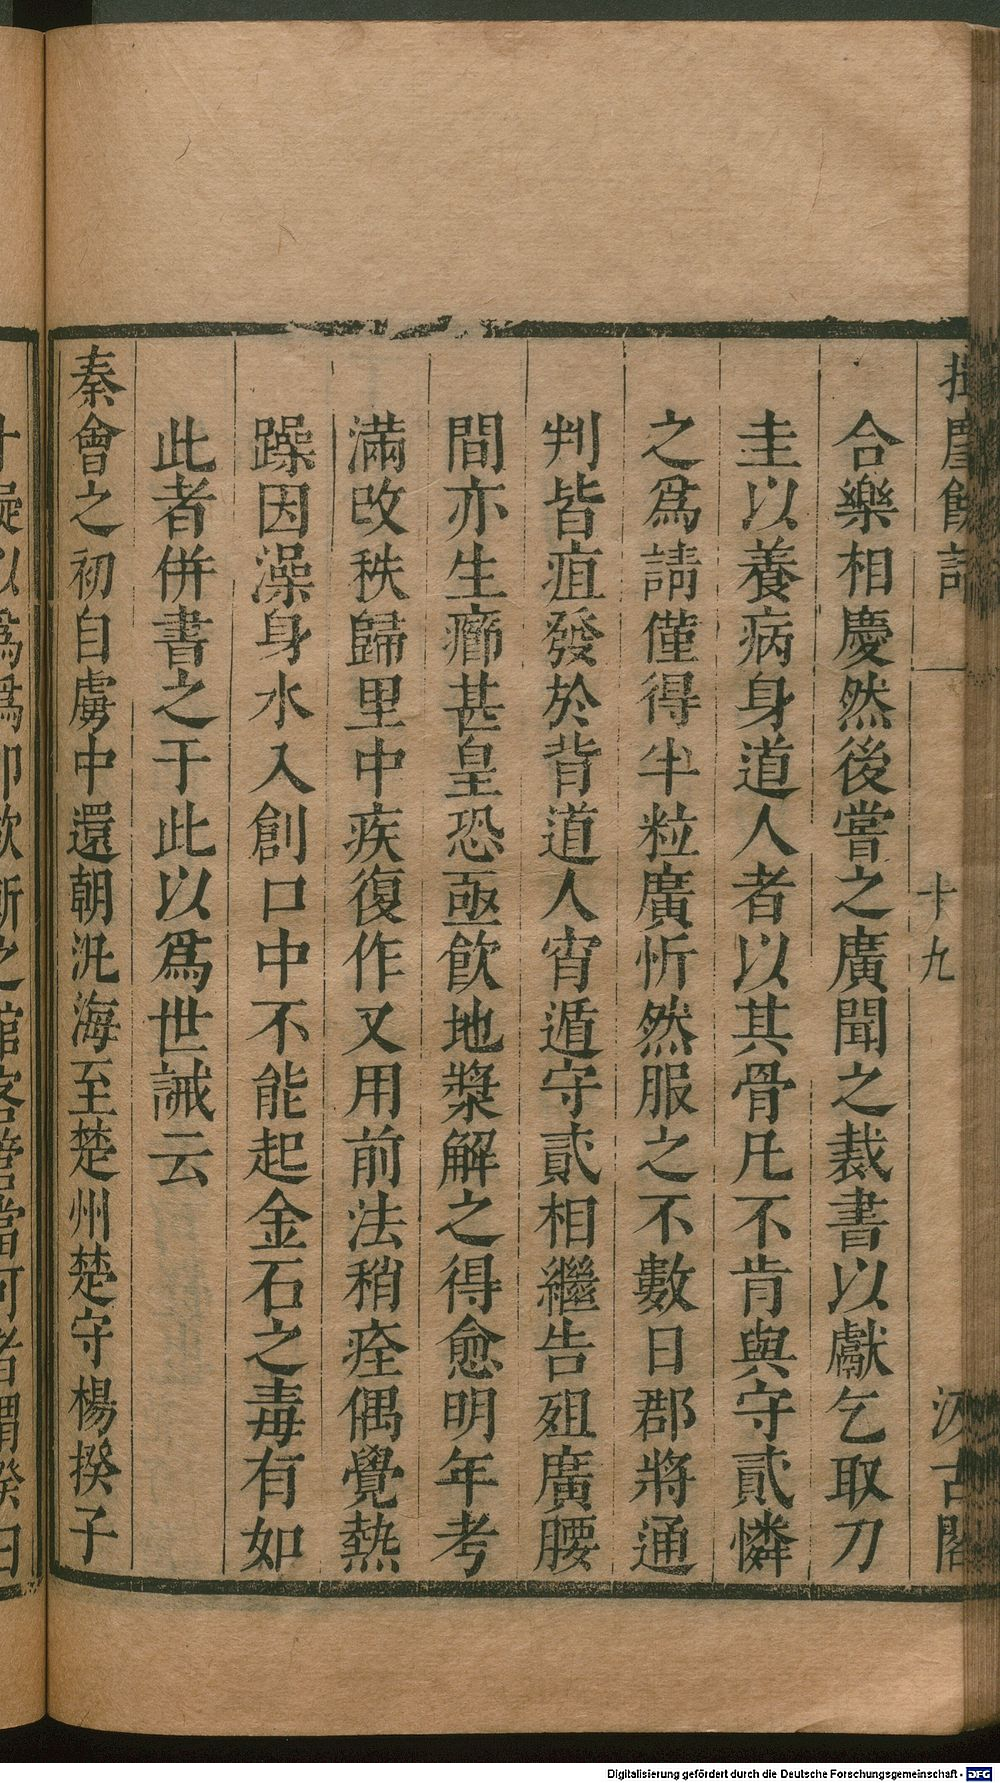 揮麈餘話 一 十九 汲古閣
合樂相慶然後嘗之廣聞之裁書以獻乞取刀
圭以養病身道人者以其骨凡不肯與守貳憐
之爲請僅得半粒廣忻然服之不數日郡將通
判皆疽發於背道人宵遁守貳相繼告殂廣腰
間亦生癤甚皇恐亟飲地漿解之得愈明年考
滿改秩歸里中疾復作又用前法稍痊偶覺熱
躁因澡身水入創口中不能起金石之毒有如
此者併書之于此以爲世誡云
秦會之初自虜中還朝泛海至楚州楚守楊揆子
Digitalisierung gefördert durch die Deutsche Forschungsgemeinschaft - DFG